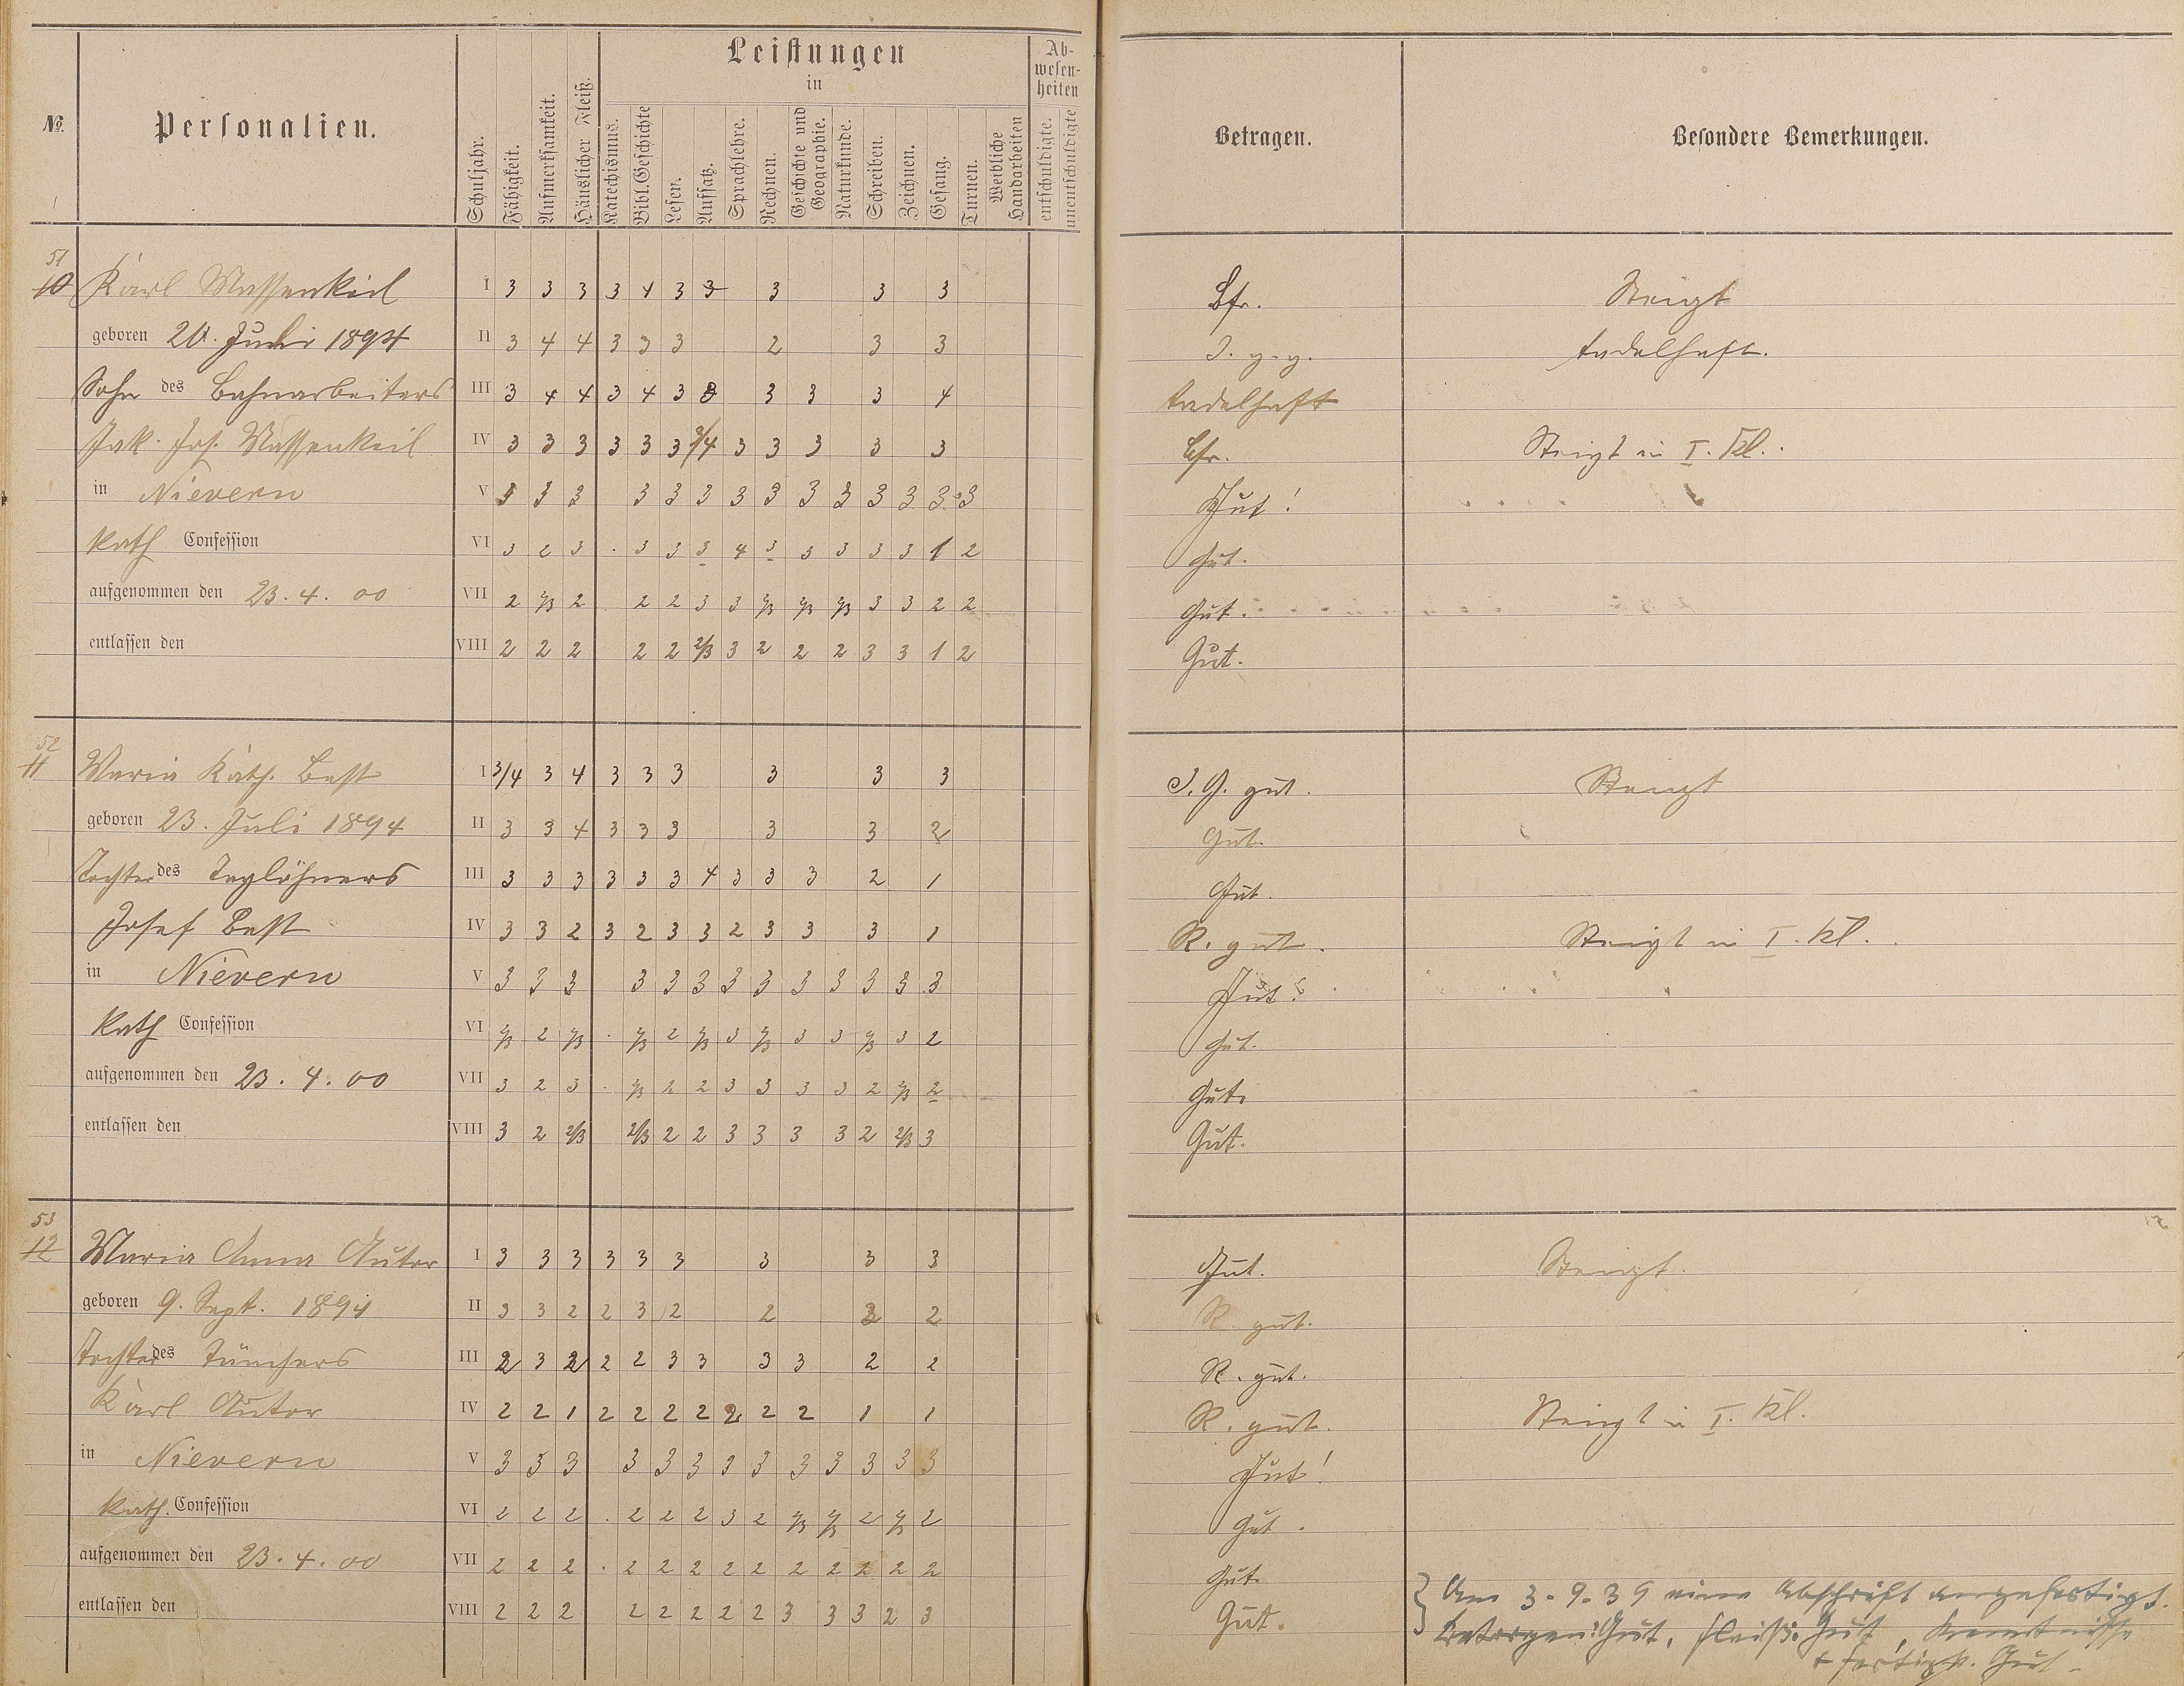 Leistungen
in
Ab-
wesen-
heiten
№
Personalien.
Schuljahr.
Fähigkeit.
Aufmerksamkeit.
Häuslicher Fleiß.
Katechismus.
Bibl. Geschichte
Lesen.
Aufsatz.
Sprachlehre.
Rechnen.
Geschichte und
Geographie.
Naturkunde.
Schreiben.
Zeichnen.
Gesang.
Turnen.
Weibliche
Handarbeiten
entschuldigte.
unentschuldigte
Betragen.
Besondere Bemerkungen.
51
10 Karl Massenkeil I 3 3 3 3 4 3 3 3 3 3 Bfr. Steigt
geboren 20. Juli 1894 II 3 4 4 3 3 3 2 3 3 tadelhaft.
Sohn des Bahnarbeiters III 3 4 4 3 4 3 3 3 3 4 tadelhaft
Jak. Jos. Massenkeil IV 3 3 3 3 3 3 3/4 3 3 3 3 3 Bfr. Steigt in I. Kl.
in Nievern V 3 3 3 3 3 3 3 3 3 3 3 3 3 3 Gut!
Kath Confession VI 3 2 3 . 3 3 3 4 3 3 3 3 3 1 2 Gut.
aufgenommen den 23. 4. 00 VII 2 2/3 2 2 2 3 3 2/3 2/3 2/3 3 3 2 2 Gut.
entlassen den VIII 2 2 2 2 2 2/3 3 2 2 2 3 3 1 2 Gut.
52
11 Maria Kath. Best I 3/4 3 4 3 3 3 3 3 3 I. G. gut. Steigt
geboren 23. Juli 1894 II 3 3 4 3 3 3 3 3 2 Gut.
Tochter des Taglöhners III 3 3 3 3 3 3 4 3 3 3 2 1 Gut.
Josef Best IV 3 3 2 3 2 3 3 2 3 3 3 1 R. gut. Steigt in I. Kl.
in Nievern V 3 3 3 3 3 3 3 3 3 3 3 3 3 Gut!
Kath Confession VI 2/3 2 2/3 . 2/3 2 2/3 3 2/3 3 3 2/3 3 2 Gut.
aufgenommen den 23. 4. 00 VII 3 2 3 . 2/3 2 2 3 3 3 3 2 2/3 2 Gut.
entlassen den VIII 3 2 2/3 2/3 2 2 3 3 3 3 2 2/3 3 Gut.
53
12 Maria Anna Autor I 3 3 3 3 3 3 3 3 3 Gut. Steigt.
geboren 9. Sept. 1894 II 3 3 2 2 3 2 2 2 R. gut.
Tochter des Tünchers III 2 3 2 2 2 3 3 3 3 2 2 R. gut.
Karl Autor IV 2 2 1 2 2 2 2 2 2 2 1 1 R. gut. Steigt in I. Kl.
in Nievern V 3 3 3 3 3 3 3 3 3 3 3 3 3 Gut!
Kath. Confession VI 2 2 2 . 2 2 2 3 2 2/3 2/3 2 2/3 2 Gut.
aufgenommen den 23. 4. 00 VII 2 2 2 . 2 2 2 2 2 2 2 2 2 2 Gut.
entlassen den VIII 2 2 2 2 2 2 2 2 3 3 3 2 3 Gut.
Am 3. 9. 39 eine Abschrift angefertigt.
Betragen: Gut, Fleiß: Gut, Kenntnisse
+ Fertigk. Gut.